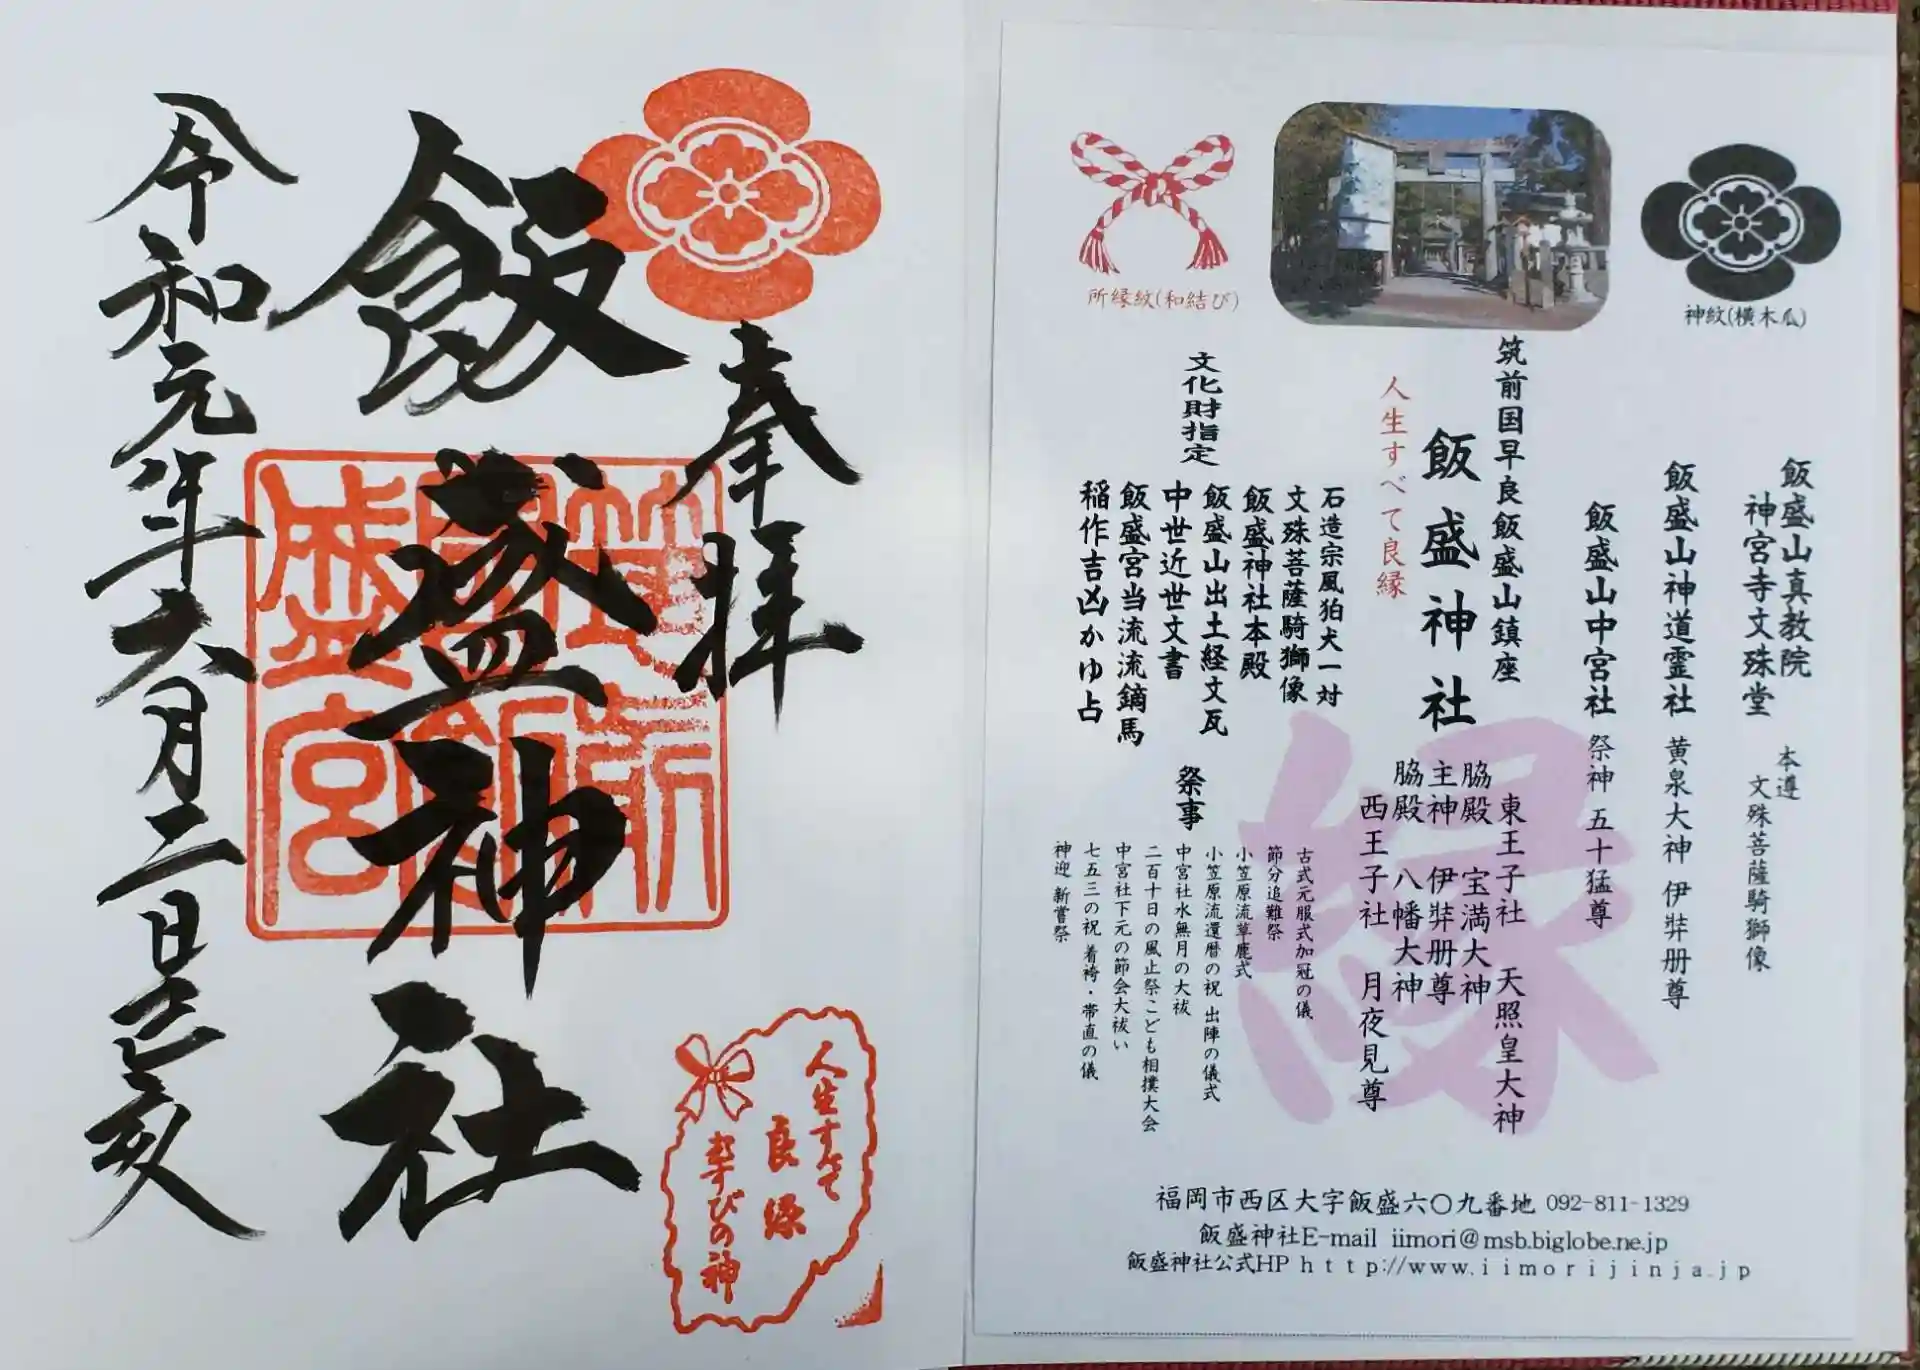 奉拝
飯盛神社
令和元年六月二日己亥
筑前国
飯盛宮
人生すべて
良縁
むすびの神
所縁紋(和結び)
神紋(横木瓜)
飯盛山真教院
神宮寺文殊堂
本遵
文殊菩薩騎獅像
飯盛山神道霊社 黄泉大神 伊弉册尊
飯盛山中宮社 祭神 五十猛尊
筑前国早良飯盛山鎮座
飯盛神社
人生すべて良縁
東王子社 天照皇大神
脇殿 宝満大神
主神 伊弉册尊
脇殿 八幡大神
西王子社 月夜見尊
文化財指定
石造宗風狛犬一対
文殊菩薩騎獅像
飯盛神社本殿
飯盛山出土経文瓦
中世近世文書
飯盛宮当流流鏑馬
稲作吉凶かゆ占
祭事
古式元服式加冠の儀
節分追難祭
小笠原流草鹿式
小笠原流還暦の祝 出陣の儀式
中宮社水無月の大祓
二百十日の風止祭こども相撲大会
中宮社下元の節会大祓い
七五三の祝 着袴・帯直の儀
神迎 新嘗祭
縁
福岡市西区大字飯盛六〇九番地 092-811-1329
飯盛神社E-mail iimori@msb.biglobe.ne.jp
飯盛神社公式HP http://www.iimorijinja.jp